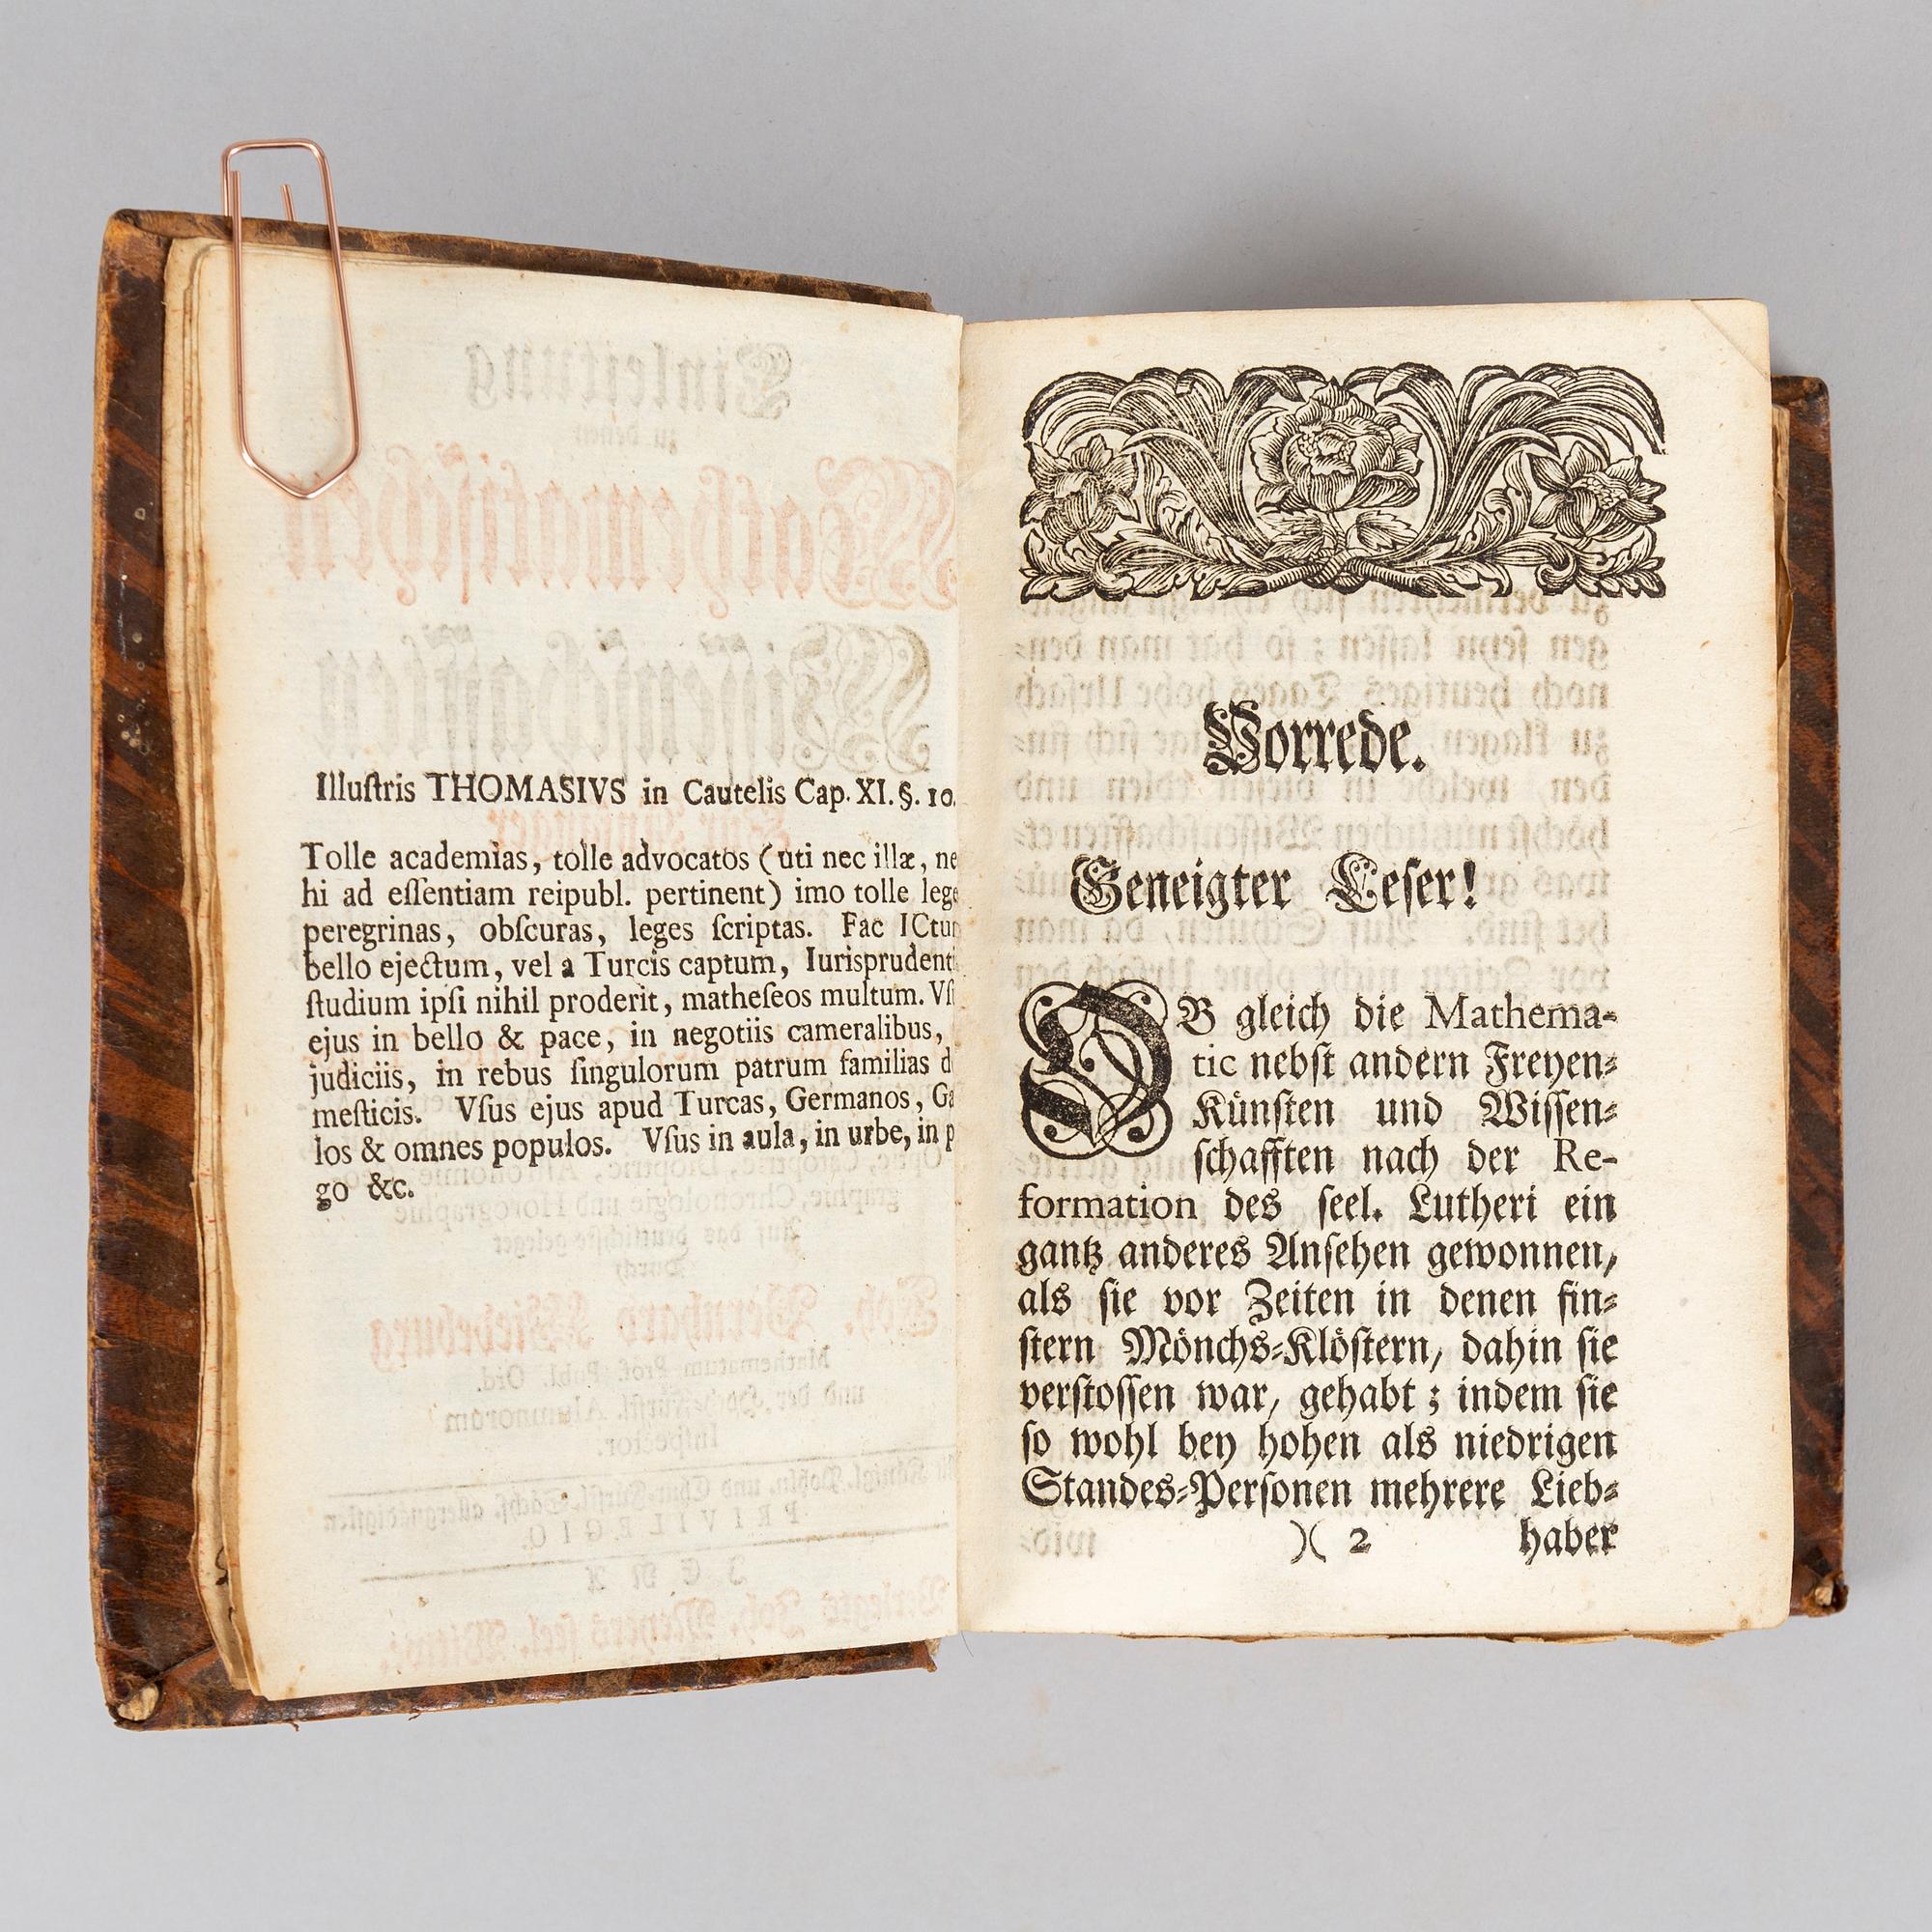 Illuſtris THOMASIVS in Cautelis Cap. XI. §. 10.
Tolle academias, tolle advocatos (uti nec illæ, ne
hi ad eſſentiam reipubl. pertinent) imo tolle lege
peregrinas, obſcuras, leges ſcriptas. Fac ICtum
bello ejectum, vel a Turcis captum, Iurisprudenti
ſtudium ipſi nihil proderit, matheſeos multum. Vſ
ejus in bello & pace, in negotiis cameralibus,
judiciis, in rebus ſingulorum patrum familias d
meſticis. Vſus ejus apud Turcas, Germanos, Ga
los & omnes populos. Vſus in aula, in urbe, in p
go &c.
Vorrede.
Geneigter Leſer!
OB gleich die Mathema-
tic nebſt andern Freyen-
Künſten und Wiſſen-
ſchafften nach der Re-
formation des ſeel. Lutheri ein
gantz anderes Anſehen gewonnen,
als ſie vor Zeiten in denen fin-
ſtern Mönchs-Klöſtern, dahin ſie
verſtoſſen war, gehabt; indem ſie
ſo wohl bey hohen als niedrigen
Standes-Perſonen mehrere Lieb-
)( 2 haber